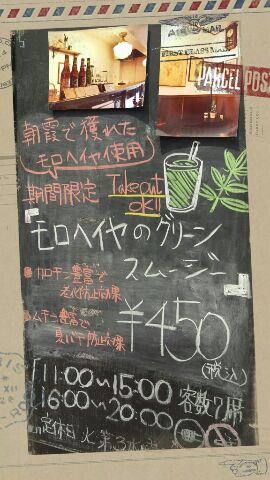 AIR MAIL
FIRST CLASS MAIL
PARCEL POS
朝霞で獲れた
モロヘイヤ使用
期間限定 Takeout
OK!!
モロヘイヤのグリーン
スムージー
カロテン豊富で
老化防止効果
ムチン豊富で
夏バテ防止効果
¥450
(税込)
11:00～15:00
16:00～20:00
客数7席
定休日 火 第3水曜